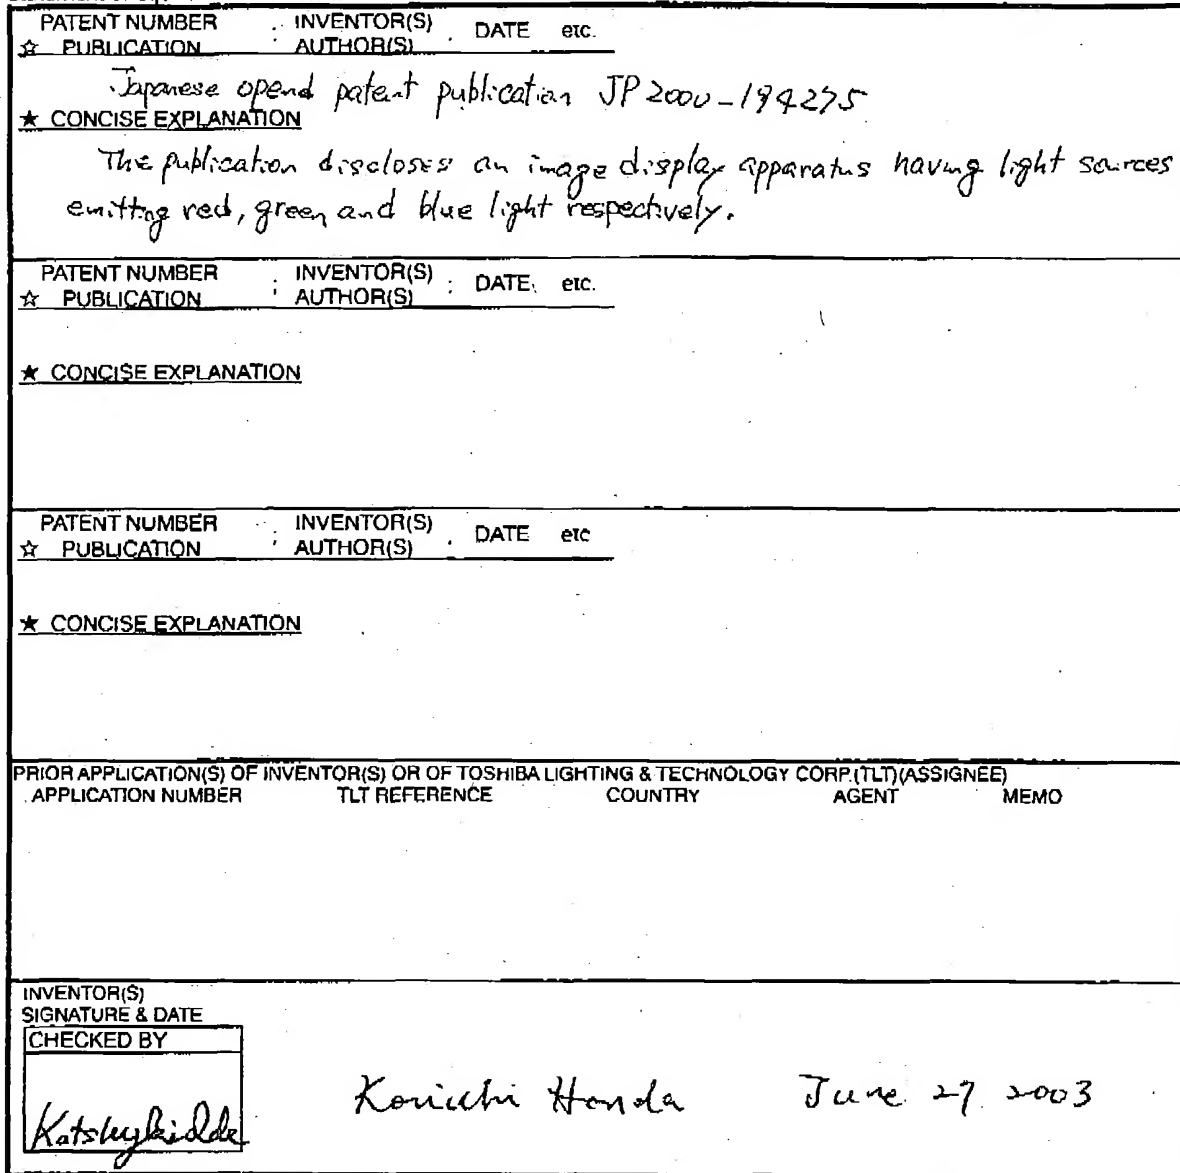 PATENT NUMBER : INVENTOR(S) . DATE etc.
☆ PUBLICATION AUTHOR(S)
Japanese opend patent publication JP 2000-194275
★ CONCISE EXPLANATION
The publication discloses an image display apparatus having light sources
emitting red, green and blue light respectively.
PATENT NUMBER : INVENTOR(S) : DATE etc.
☆ PUBLICATION AUTHOR(S)
★ CONCISE EXPLANATION
PATENT NUMBER : INVENTOR(S) . DATE etc
☆ PUBLICATION AUTHOR(S)
★ CONCISE EXPLANATION
PRIOR APPLICATION(S) OF INVENTOR(S) OR OF TOSHIBA LIGHTING & TECHNOLOGY CORP.(TLT)(ASSIGNEE)
APPLICATION NUMBER TLT REFERENCE COUNTRY AGENT MEMO
INVENTOR(S)
SIGNATURE & DATE
CHECKED BY
Honda June 27. 2003